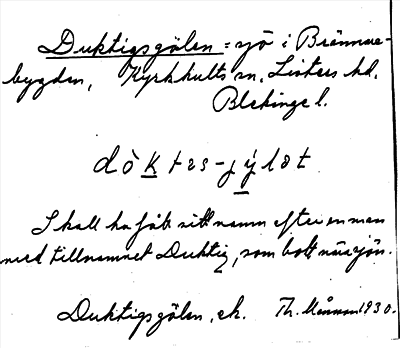 Duktigsgölen = sjö i Brännare-
bygden, Kyrkhults sn, Listers hd,
Blekinge l.
dòktəs-jýlət
Skall ha fått sitt namn efter en man
med tillnamnet Duktig, som bott nära sjön.
Duktigsgölen, ek. Th. 1930.